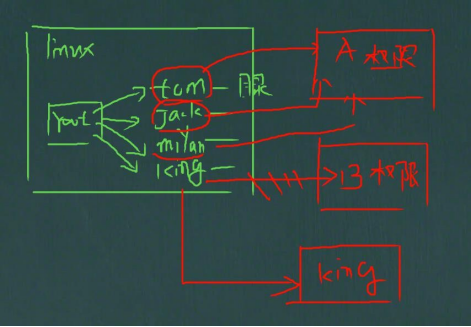 linux
tom
jack
milan
king
A 权限
B 权限
king